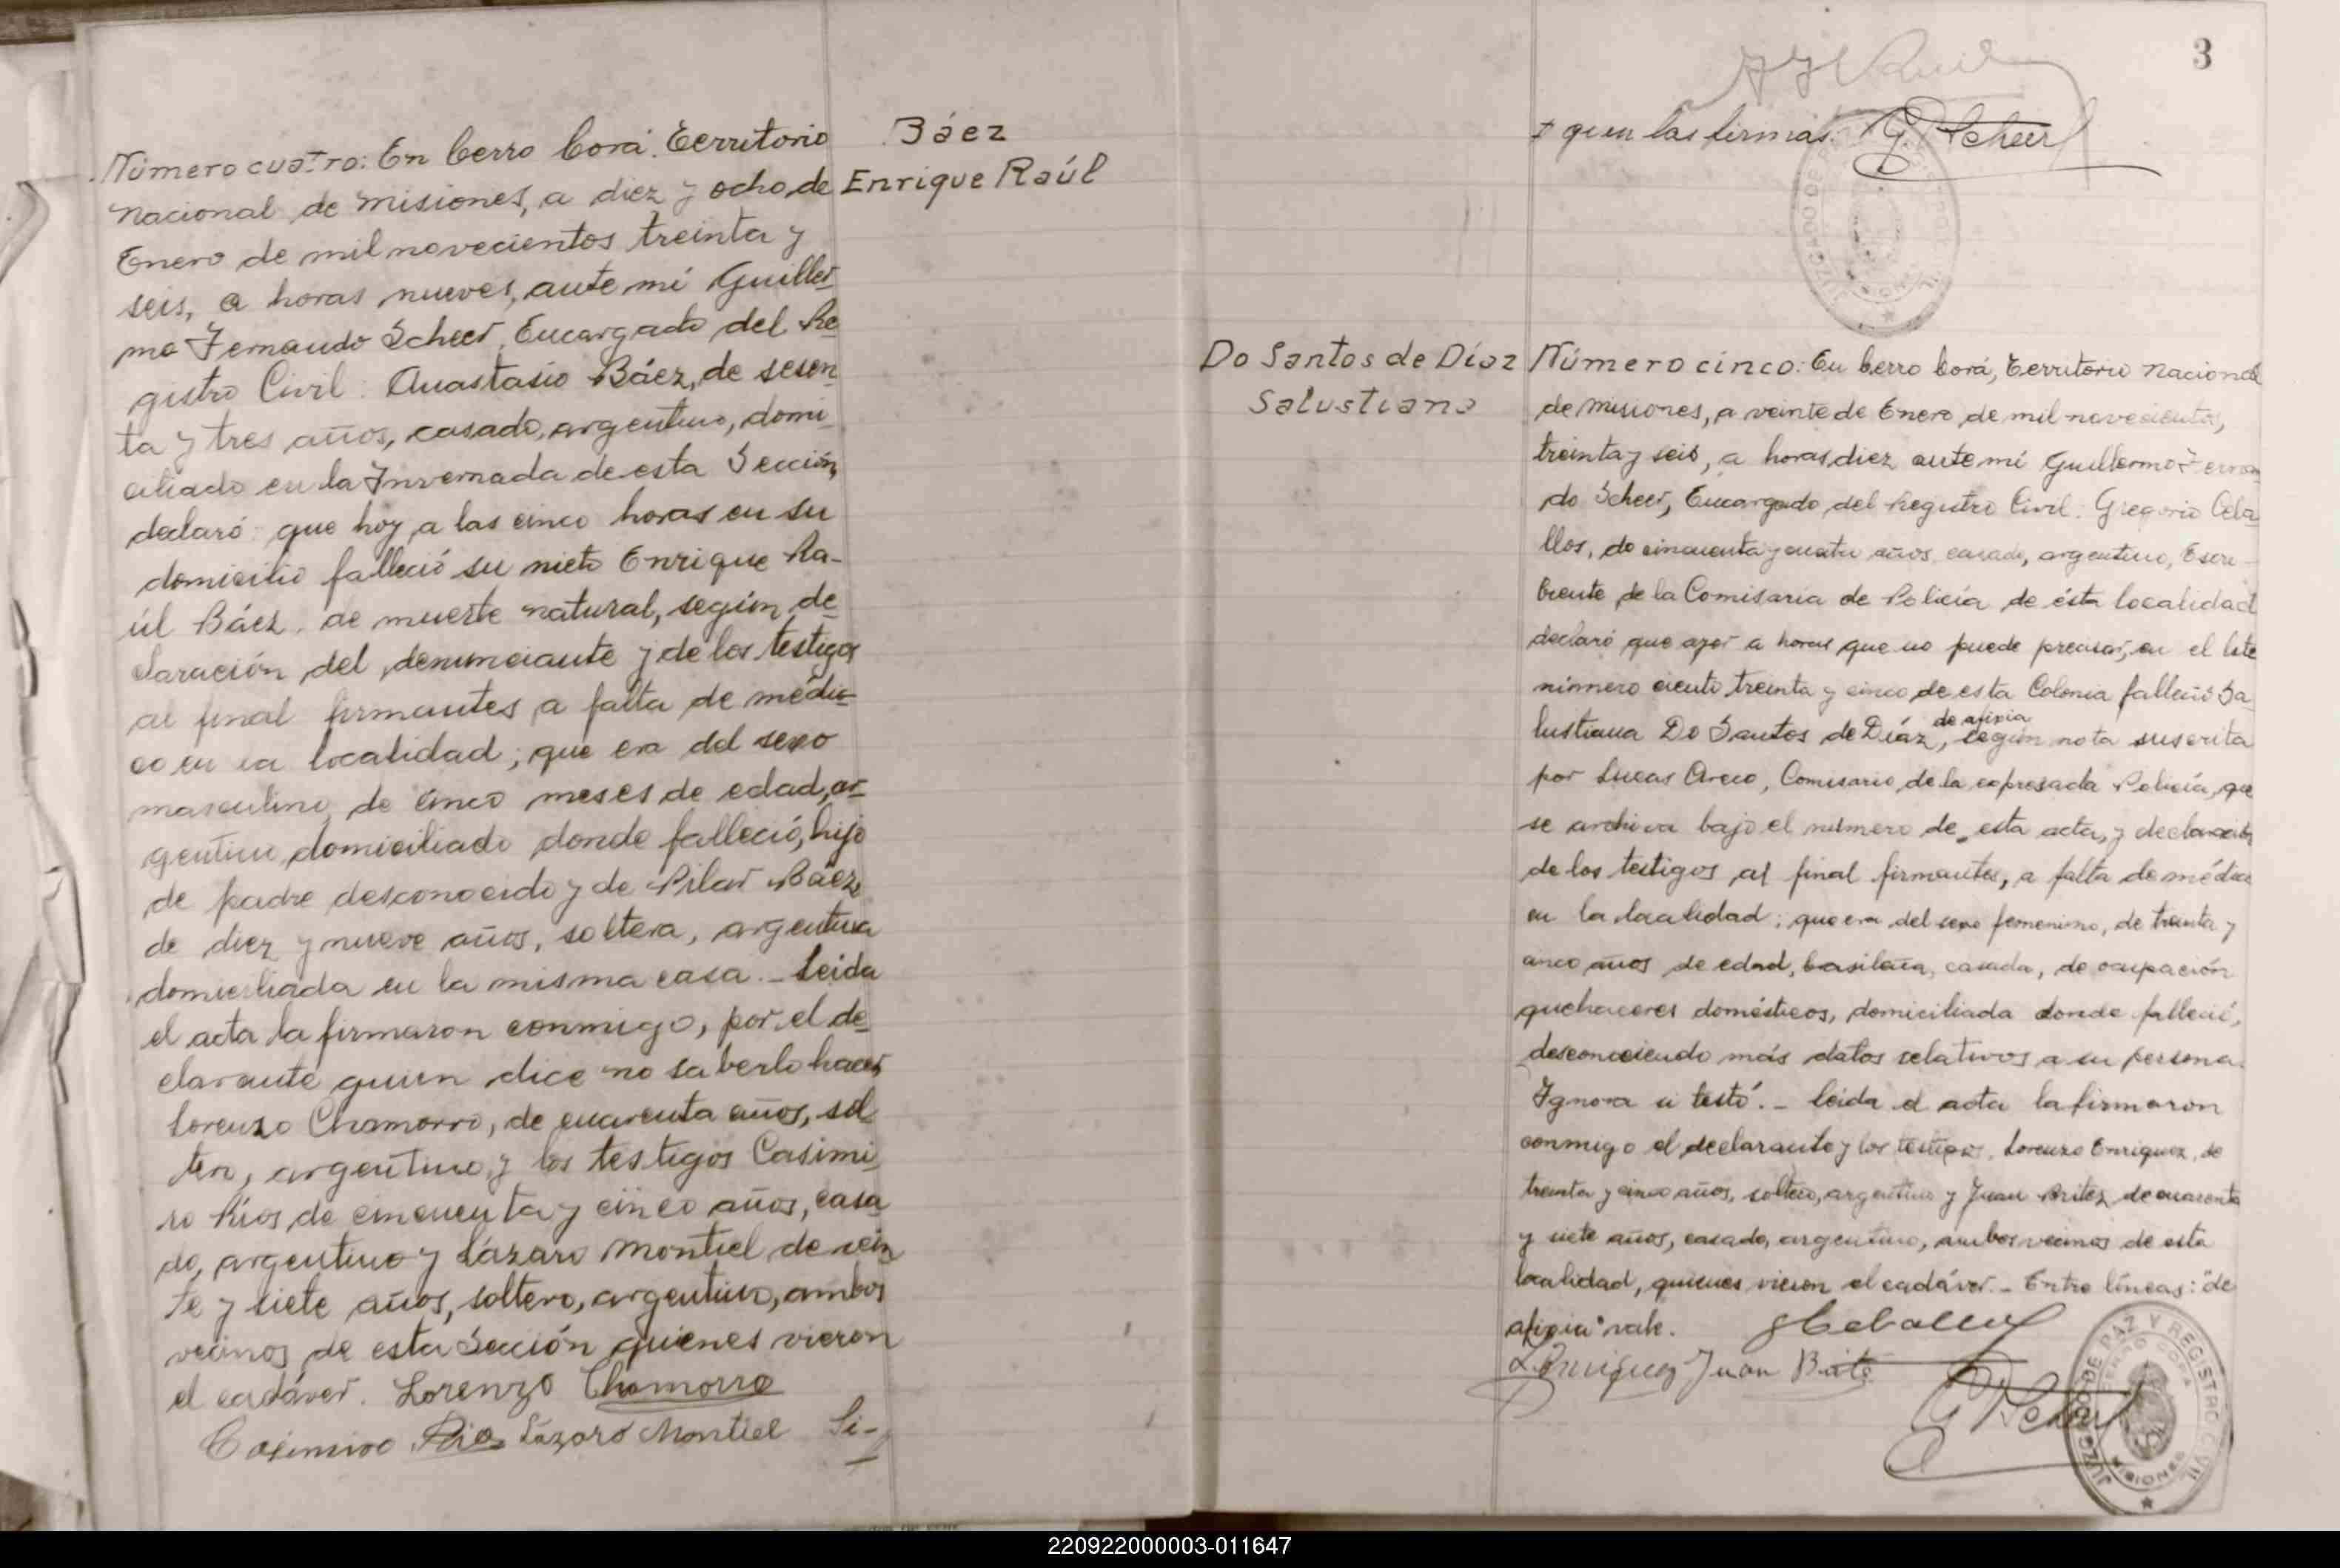 Báez
Enrique Raúl
Número cuatro: En Cerro Corá. Territorio
Nacional de Misiones, a diez y ocho de
Enero de mil novecientos treinta y
seis, a horas nueves, ante mí Guiller-
mo Fernando Scheer, Encargado del Re-
gistro Civil: Anastasio Báez, de sesen-
ta y tres años, casado, argentino, domi-
ciliado en la Invernada de esta Sección,
declaró: que hoy a las cinco horas en su
domicilio falleció su nieto Enrique Ra-
úl Báez, de muerte natural, según de-
claración del denunciante y de los testigos
al final firmantes, a falta de médi-
co en la localidad; que era del sexo
masculino, de cinco meses de edad, ar-
gentino, domiciliado donde falleció, hijo
de padre desconocido y de Pilar Báez,
de diez y nueve años, soltera, argentina
domiciliada en la misma casa.- Leida
el acta la firmaron conmigo, por el de-
clarante quien dice no saberlo hacer
Lorenzo Chamorro, de cuarenta años, sol-
tero, argentino, y los testigos Casimi-
ro Ríos, de cincuenta y cinco años, casa-
do, argentino y Lázaro Montiel de vein-
te y siete años, soltero, argentino, ambos
vecinos de esta Sección quienes vieron
el cadáver. Lorenzo Chamorro
Casimiro Rios Lázaro Montiel Si-
3
guen las firmas: G F Scheer
Do Santos de Díaz
Salustiana
Número cinco: En Cerro Corá, Territorio Nacional
de Misiones, a veinte de Enero de mil novecientos,
treinta y seis, a horas diez ante mí Guillermo Fernan-
do Scheer, Encargado del Registro Civil: Gregorio Ceba-
llos, de cincuenta y cuatro años, casado, argentino, Escri-
biente de la Comisaría de Policía de ésta localidad
declaró que ayer a horas que no puede precisar, en el lote
número ciento treinta y cinco de esta Colonia falleció Sa-
de afixia
lustiana Do Santos de Díaz, según nota suscrita
por Lucas Areco, Comisario de la expresada Policía, que
se archiva bajo el número de esta acta, y declaración
de los testigos al final firmantes, a falta de médico
en la localidad; que era del sexo femenino, de treinta y
cinco años de edad, brasileña, casada, de ocupación
quehaceres domésticos, domiciliada donde falleció,
desconociendo más datos relativos a su persona.
Ignora si testó.- Leida el acta la firmaron
conmigo el declarante y los testigos, Lorenzo Enriquez, de
treinta y cinco años, soltero, argentino y Juan Britez de cuarenta
y siete años, casado, argentino, ambos vecinos de esta
localidad, quienes vieron el cadáver.- Entre líneas: "de
afixia" vale. G Ceballos
L Enriquez Juan Brite
G F Scheer
JUZGADO DE PAZ Y REGISTRO CIVIL
CERRO CORA
MISIONES
220922000003-011647